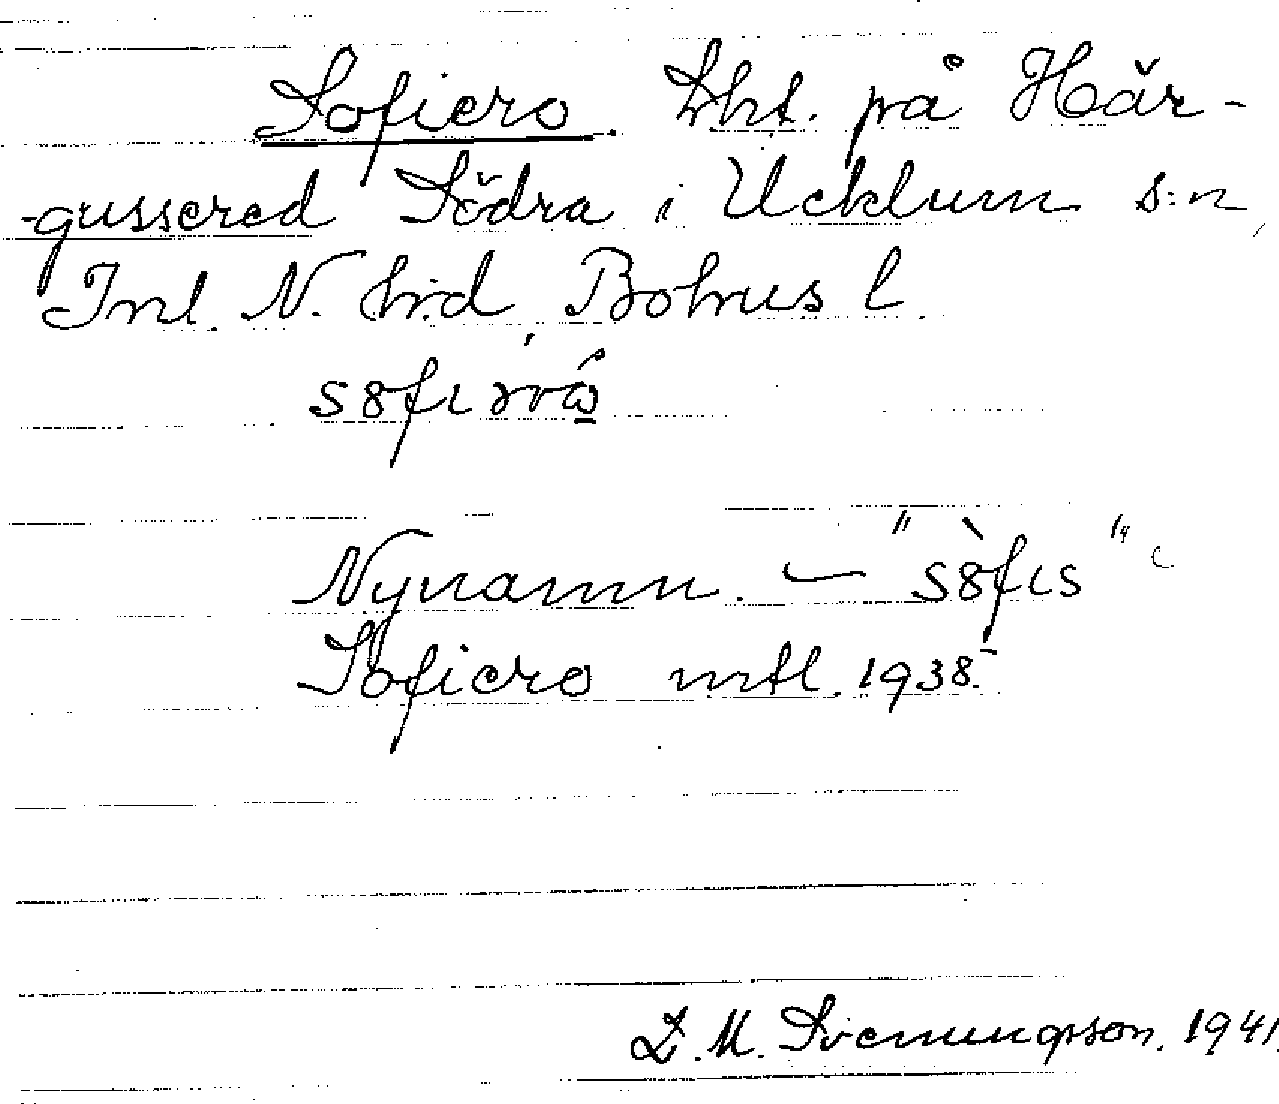 Sofiero. Lht. på Här-
gussered Södra i Ucklum s:n,
Inl. N. hd, Bohus l.
Nynamn. – "sòfɩs"
Sofiero mtl. 1938.
Z. M. Svenungsson. 1941.